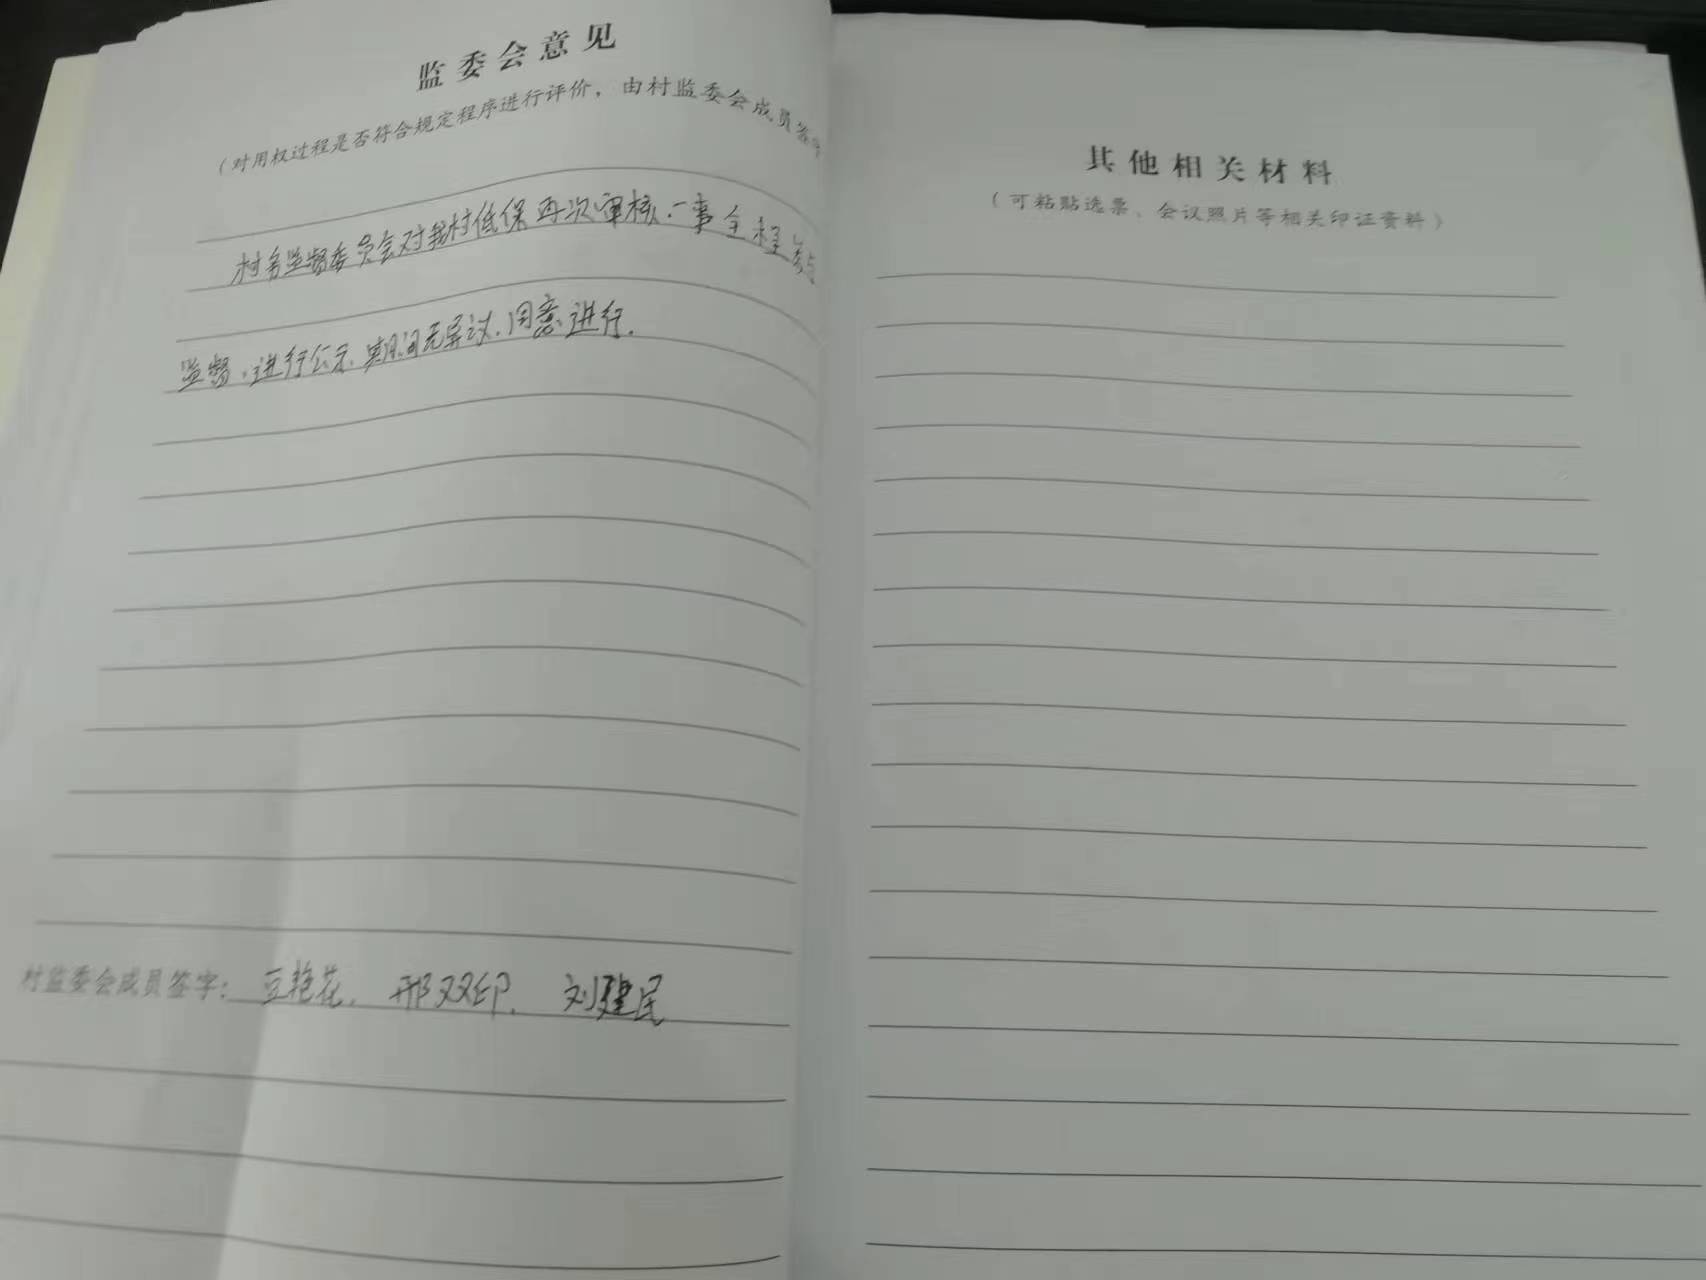 监委会意见
（对用权过程是否符合规定程序进行评价，由村监委会成员签字
村务监督委员会对我村低保再次审核、一事全程参与
监督、进行公示、期间无异议、同意进行.
村监委会成员签字：豆艳花、邢双印、刘建民
其他相关材料
（可粘贴选票、会议照片等相关印证资料）